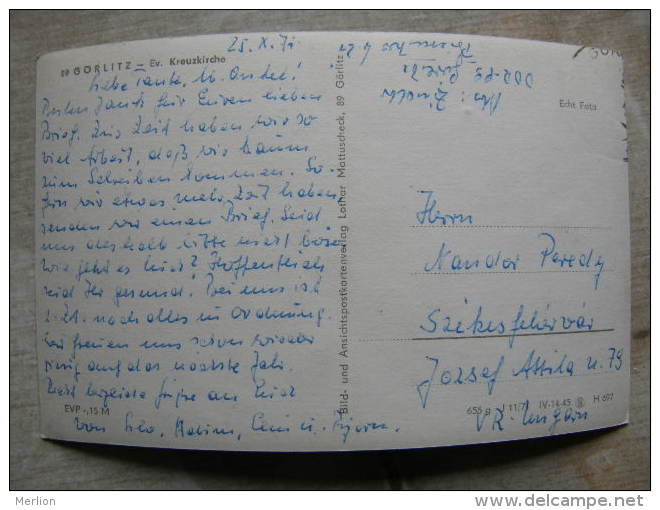 89 GÖRLITZ – Ev. Kreuzkirche
25. X. 71
Liebe Tante, lb. Onkel!
Vielen Dank für Euren lieben
Brief. Zur Zeit haben wir so
viel Arbeit, daß wir kaum
zum Schreiben kommen. So-
wir etwas mehr Zeit haben,
senden wir einen Brief. Seid
uns deshalb bitte nicht böse.
Wie geht es Euch? Hoffentlich
seid Ihr gesund. Bei uns ist
z. Zt. noch alles in Ordnung.
Wir freuen uns schon wieder
riesig auf das nächste Jahr.
Recht herzliche Grüße an Euch
von
EVP -,15 M
Bild- und Ansichtspostkartenverlag Lothar Mattuscheck, 89 Görlitz
Abs:
DDR-89 Görlitz
Echt Foto
Herrn
Nandor Peredy
Székesfehérvár
Jozsef Attila u. 79
VR-Ungarn
655 g J 11/71 IV-14-45 H 697
Merlion
www.delcampe.net